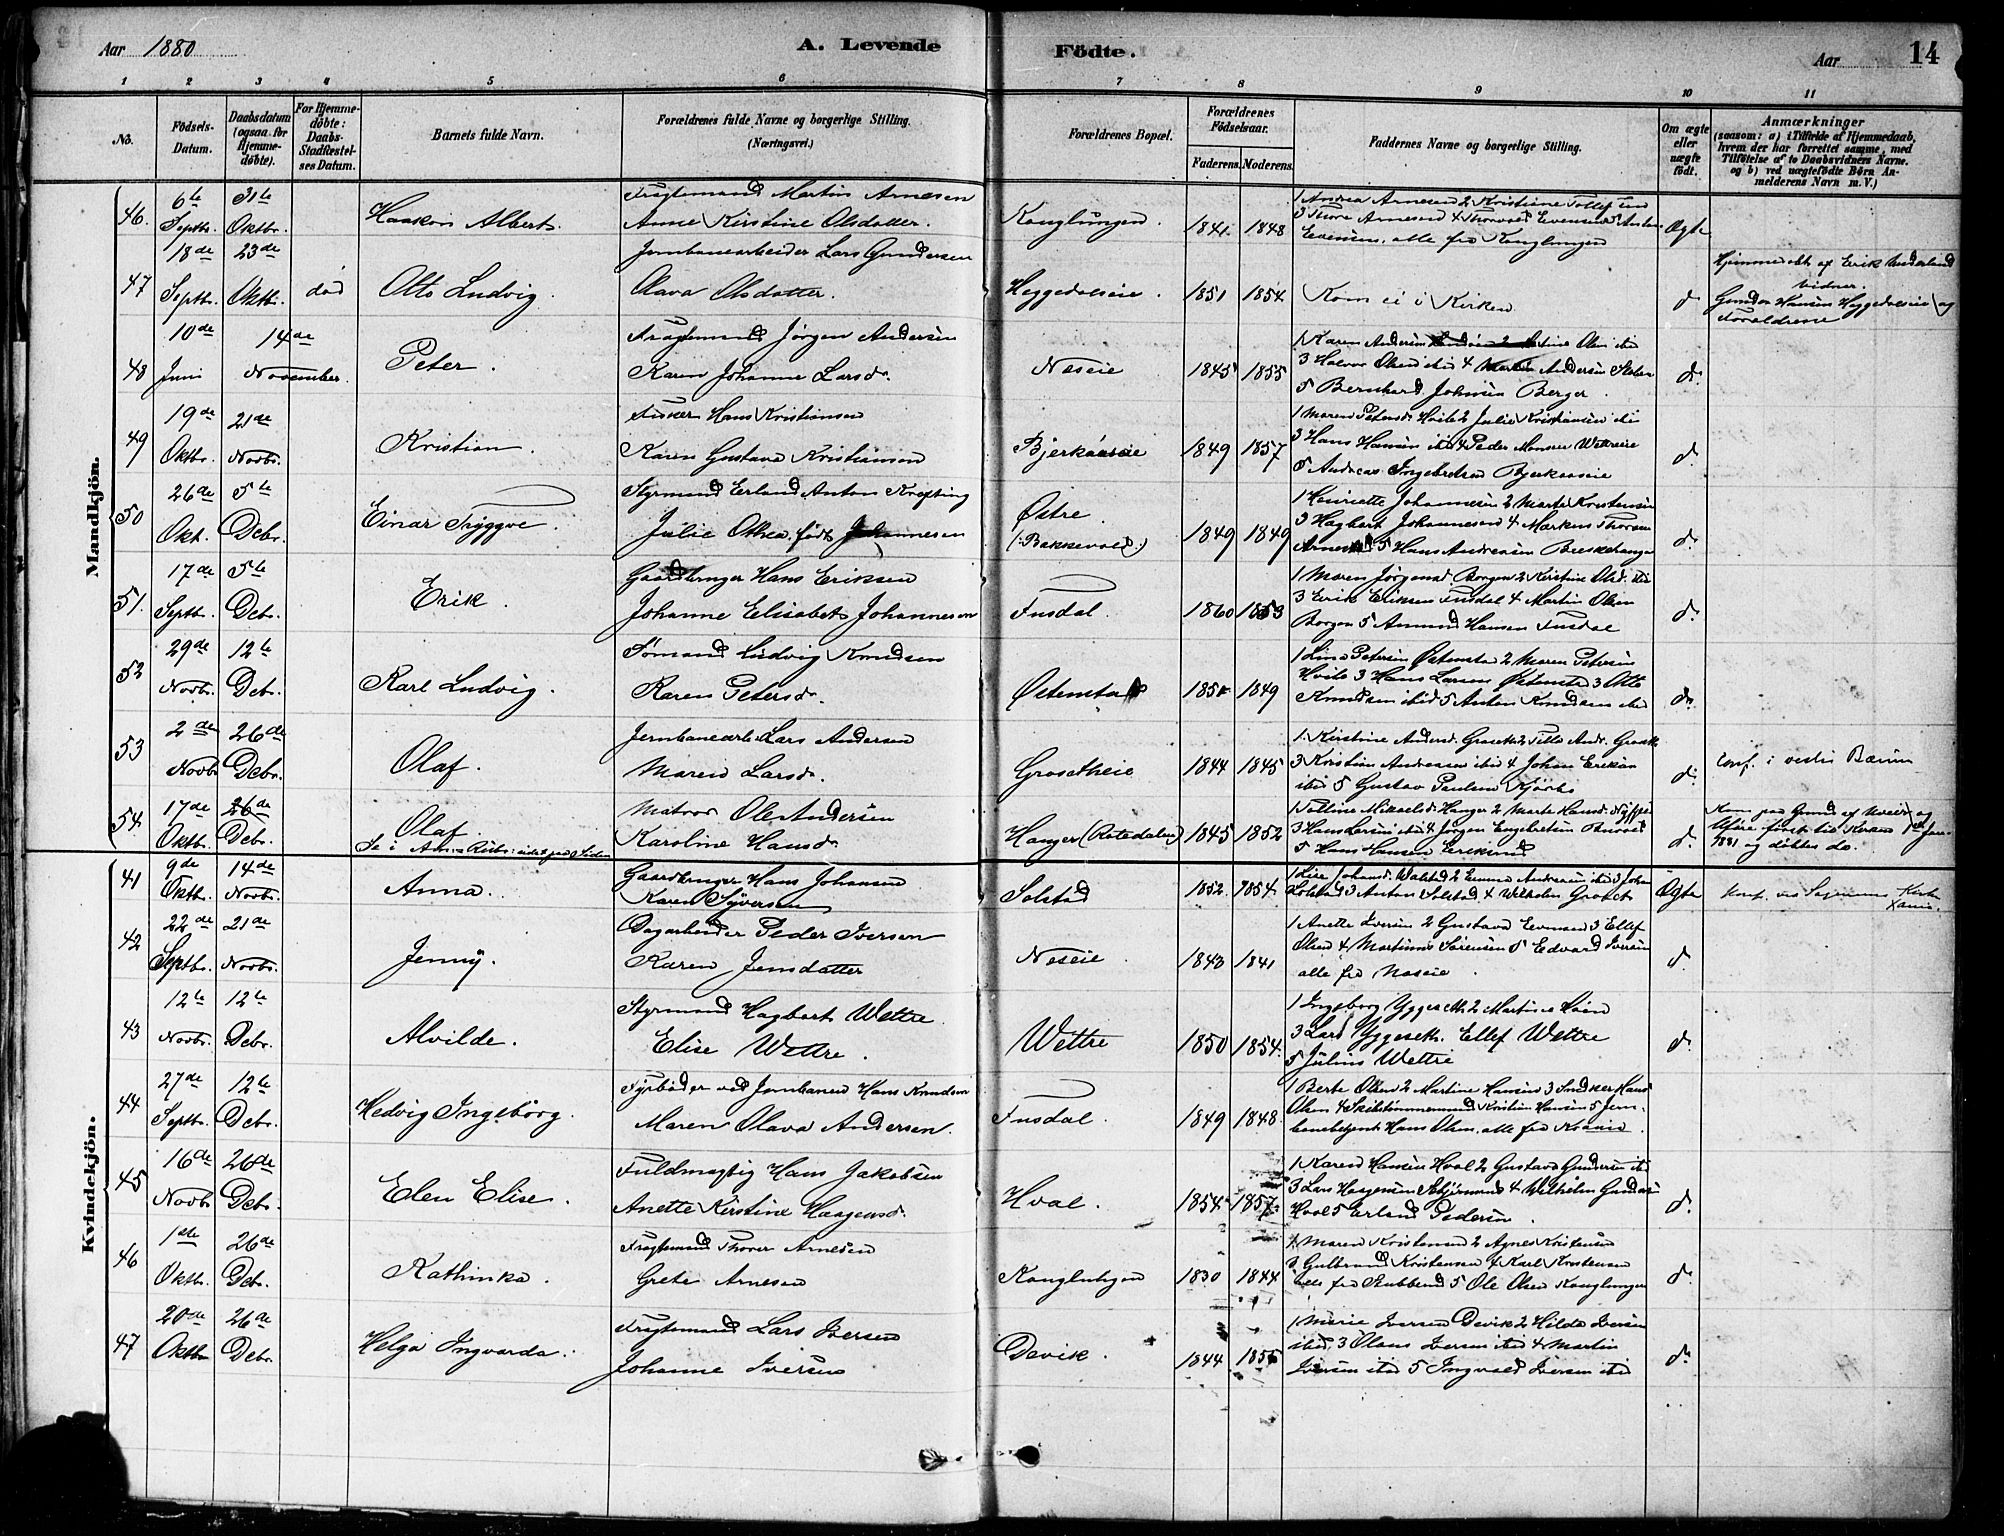 Aar 1880
A. Levende Födte.
Aar
14
1 2 3 4 5 6 7 8 9 10 11
No.
Födsels-Datum.
Daabsdatum (ogsaa for Hjemme-døbte).
For Hjemme-døbte: Daabs-Stadfæstel-ses Datum.
Barnets fulde Navn.
Forældrenes fulde Navne og borgerlige Stilling. (Næringsvei.)
Forældrenes Bopæl.
Forældrenes Födselsaar.
Faderens. Moderens.
Faddernes Navne og borgerlige Stilling.
Om ægte eller uægte födt.
Anmærkninger (saasom: a) i Tilfælde af Hjemmedaab, hvem der har forrettet samme, med Tilföielse af to Daabsvidners Navne. og b) ved uægtefödte Börn An-melderens Navn m. V.)
Mandkjön.
46. 6te Septbr. 31te Oktbr. Haakon Albert.
Fragtemand Martin Arnesen
Anne Kirstine Olsdatter.
Konglungen 1841. 1848
1 Andrea Arnesen 2 Kristiane
3 Thore Arnesen 4 Thorvald Evensen 5 Anton
Evensen. alle fra Konglungen
Ægte
47 18de Septbr. 23de Oktbr. død Otto Ludvig.
Jernbanearbeider Lars Gundersen
Olava Olsdatter.
Heggedalseie. 1851 1854.
Kom ei i Kirken
do
Hjemmedøbt af Erik Underland
Vidner.
Gunder Hansen Heggedalseie og
Forældrene
48 10de Juni 14de November. Peter.
Fragtemand Jørgen Andersen
Karen Johanne Larsd.
Næseie 1845 1855
1 Karen Andersen 2 Olsen ibid
3 Halvor Olsen ibid 4 Andersen
5 Bernhard Johnsen Berger.
do
49 19de Oktbr. 21de Novbr. Kristian.
Fisker Hans Kristiansen
Karen Gustava Kristiansen
Bjerkaaseie 1849 1857
1 Maren Petersd. Hvils 2 Julie Kristiansen ibid
3 Hans Hansen ibid 4 Peder Monsen Wettreeie
5 Andreas Ingebretsen Bjerkaaseie
do
50 26de Okt. 5te Debr. Einar Tryggve.
Styrmand Erland Anton Krefting
Julie Othea, født Johannesen
Østre.
(:Bakkevold:) 1849 1849
1 Henriette Johannesen 2 Marte Kristensen
3 Hagbart Johannesen 4 Markus Thorsen
5 Hans Andreasen Breskehanger
do
51. 17de Septb. 5te Debr. Erik.
Gaardbruger Hans Eriksen
Johanne Elisabet Johannesen
Fusdal. 1860 1853
1 Maren Jørgensd. Borgen 2 Kirstine Olsd. ibid
3 Erik Eriksen Fusdal 4 Martin Olsen
Borgen 5 Amund Hansen Fusdal
do
52 29de Novbr. 12te Debr. Karl Ludvig.
Sømand Ludvig Knudsen
Karen Petersd.
Østenstad 1849
1 Lina Petersen Østenstad 2 Maren Petersen
Hvils 3 Hans Larsen Østenstad 3 Otto
Knudsen ibid 5 Anton Knudsen ibid
do
53 2den Novbr 26de Debr. Olaf.
Jernbanearb. Lars Andersen
Maren Larsd.
Grosetheie 1844 1845
1. Kirstine Andersd. Groseth 2 And. Groseth
3 Kristian Andreasen ibid 4 Johan Eriksen
ibid 5 Gustav Paulsen Kjørbo
do
Conf. i vestre Bærum
54. 17de Oktbr. 26de Debr. Olaf.
Matros Ole Andersen
Karoline Hansd.
Hanger (Rotedalen) 1845 1852
1 Mikaelsd. Hanger 2 Marte Hansd.
3 Hans Larsen ibid 4 Jørgen Engebretsen
5 Hans Hansen
do
Kom paa Grund af Uveier og
Uføre først til Kirken 1ste Jan.
1881 og døbtes da.
Kvindekjön.
41 9de Oktb. 14de Novbr. Anna.
Gaardbruger Hans Johansen
Karen Syversen
Solstad 1852. 1854.
Johansd. Walstad 2 Emma Andersen ibid 3 Johan
Solstad 3 Anton Solstad 4 Wilhelm Groset
Ægte
Konf. Kirke
42 22de Septbr. 21de Novbr. Jenny.
Dagarbeider Peder Iversen
Karen Jensdatter
Neseie 1843 1841
1 Anette Iversen 2 Gustava Evensen 3 Ellef
Olsen 4 Martinus Sørensen 5 Edvard Iversen
alle fra Næseie.
do
43 12te Novbr. 12te Debr. Alvilde.
Styrmand Hagbart Wettre.
Elise Wettre.
Wettre 1850 1854.
1 Ingeborg Yggeseth 2 Martine Høien
3 Lars Yggeseth. Ellef Wettre
5 Julius Wettre
do
44 27de Septbr. 12te Debr. Hedvig Ingeborg.
Fyrbøder ved Jernbanen Hans Knudsen
Maren Olava Andersen.
Fusdal. 1849 1848.
1 Berte Olsen 2 Martine Hansen 3 Snedker Hans
Olsen 4 Skibstømmermand Kristian Hansen 5 Jern-
banebetjent Hans Olsen, alle fra
do
45 16de Novbr 26de Debr. Elen Elise.
Fuldmægtig Hans Jakobsen
Anette Kirstine Haagensd.
Hval. 1854 1857
1 Karen Hansen Hval 2 Gustava Gundersen ibid
3 Lars Haagensen 4 Wilhelm Gundersen
Hval 5 Erland Pedersen.
do
46 1ste Oktbr. 26de Debr. Kathinka.
Fragtemand Thorer Arnesen
Grete Arnesen
Konglungen 1830 1844
1 Maren Kristensen 2 Agnes Kristensen
3 Gulbrand Kristensen 4 Karl Kristensen
alle fra Stubben 5 Ole Olsen Konglungen
do
47 20de Oktbr 26de Debr. Helga Ingvarda.
Fragtemand Lars Iversen
Johanne Iversen
Devik. 1844
1 Marie Iversen Devik 2 Hilda Iversen
ibid, 3 Olaus Iversen ibid 4 Martin
Iversen ibid 5 Ingvald Iversen ibid
do